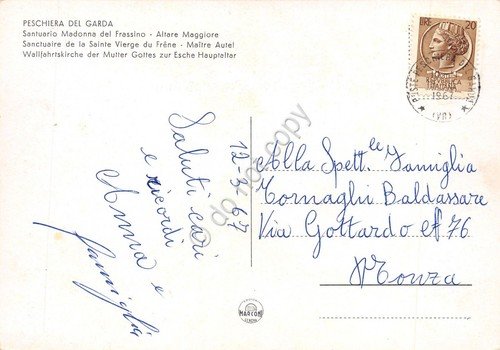 PESCHIERA DEL GARDA
Santuario Madonna del Frassino - Altare Maggiore
Sanctuaire de la Sainte Vierge du Frêne - Maître Autel
Wallfahrtskirche der Mutter Gottes zur Esche Hauptaltar
LIRE 20
1967
(VR)
12-4-67
Saluti cari
e ricordi
Anna e
famiglia
Alla Spett.le Famiglia
Tornaghi Baldassare
Via Gottardo n° 76
Monza
MARCON
do not copy